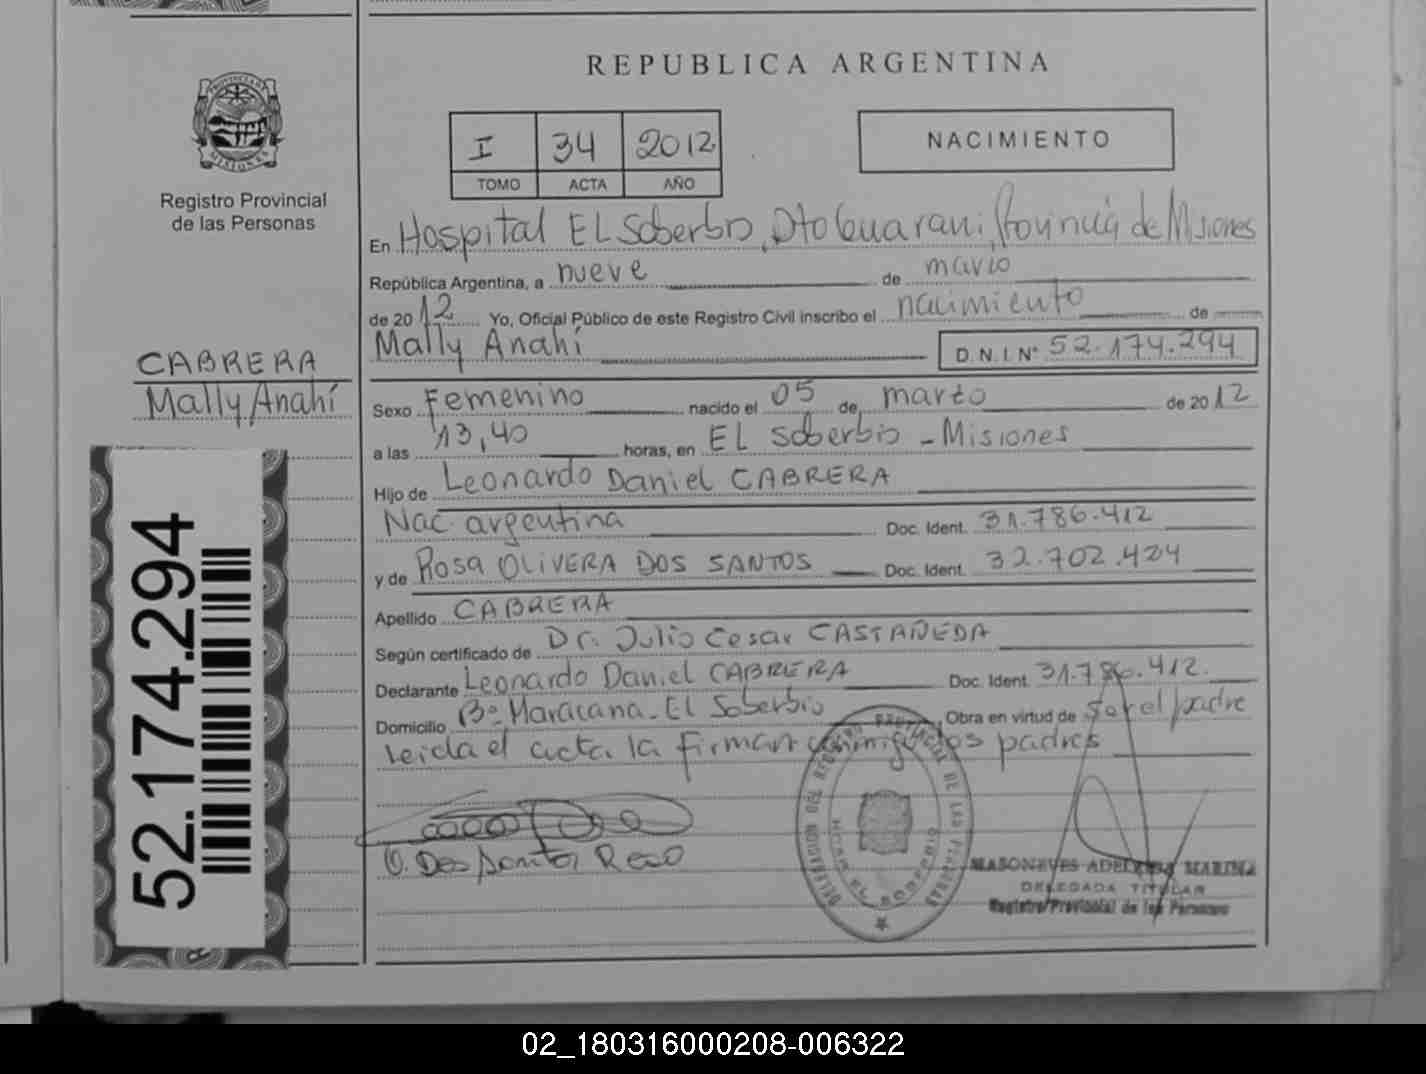 REPUBLICA ARGENTINA
PROVINCIA DE MISIONES
Registro Provincial
de las Personas
I 34 2012
TOMO ACTA AÑO
NACIMIENTO
En Hospital EL Soberbio, Dto Guarani, Provincia de Misiones
República Argentina, a nueve de marzo
de 2012 Yo, Oficial Público de este Registro Civil inscribo el nacimiento de
Mally Anahí D.N.I. N° 52.174.294
CABRERA
Mally Anahí
Sexo Femenino nacido el 05 de marzo de 2012
a las 13,40 horas, en EL Soberbio - Misiones
Hijo de Leonardo Daniel CABRERA
Nac. argentina Doc. Ident. 31.786.412
y de Rosa OLIVERA DOS SANTOS Doc. Ident. 32.702.424
Apellido CABRERA
Según certificado de Dr. Julio Cesar CASTAÑEDA
Declarante Leonardo Daniel CABRERA Doc. Ident. 31.786.412.
Domicilio B° Maracana - El Soberbio Obra en virtud de ser el padre
leida el acta la firman conmigo los padres
52.174.294
O. Dos Santos Rosa
DELEGACION DEL REGISTRO PROVINCIAL DE LAS PERSONAS
MASONEVES ADELAIDA MARINA
DELEGADA TITULAR
Registro Provincial de las Personas
02_180316000208-006322